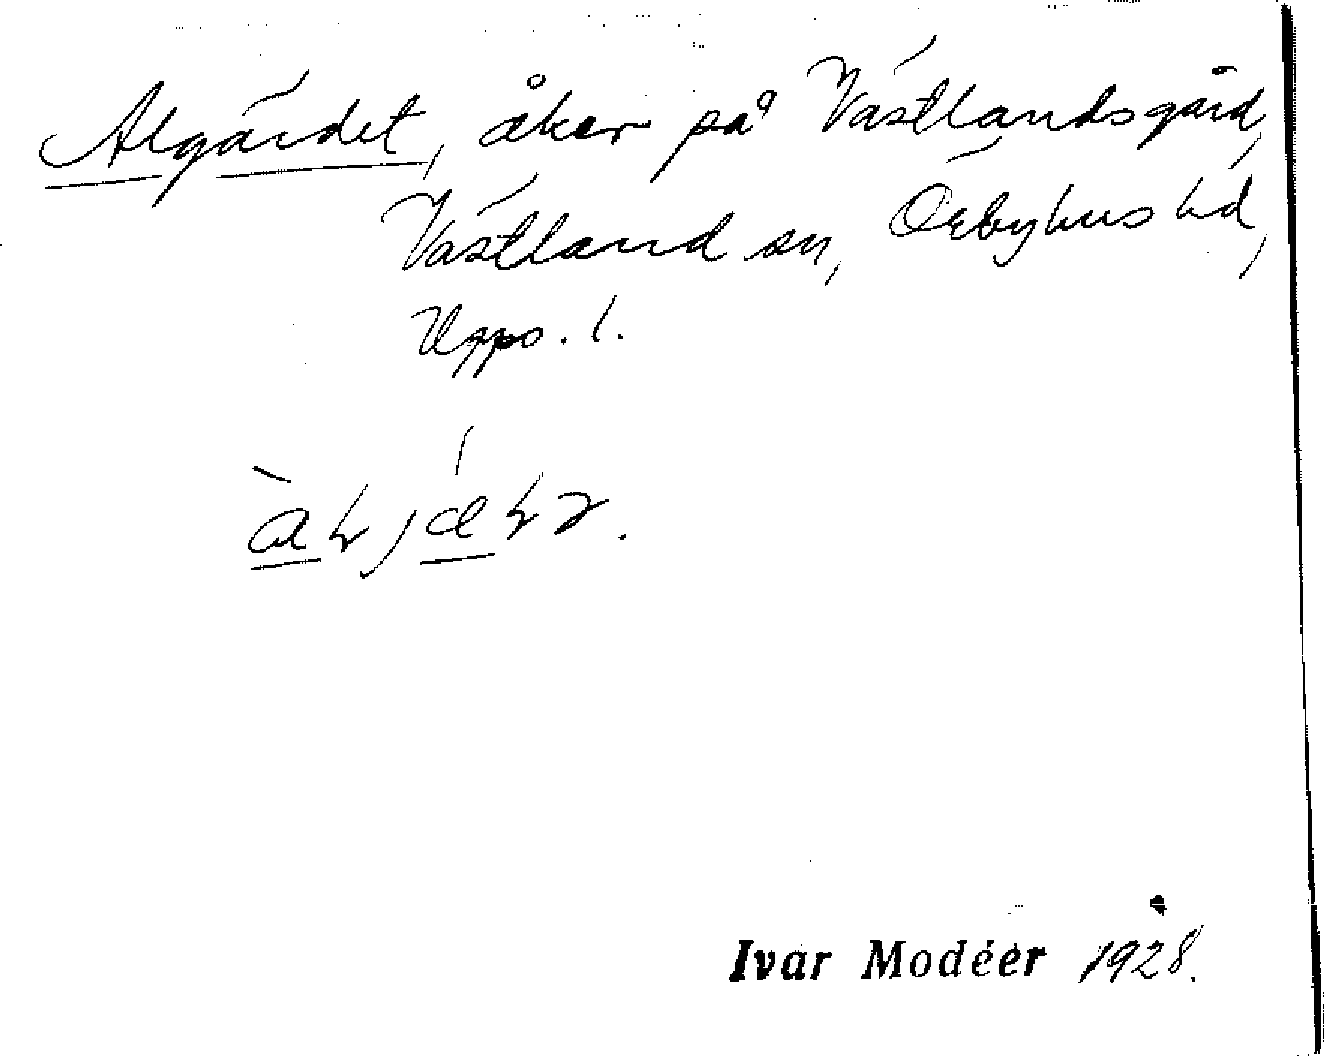 Algärdet, åker på Västlandsgård,
Västland sn, Örbyhus hd,
Upps. l.
Ivar Modéer 1928.